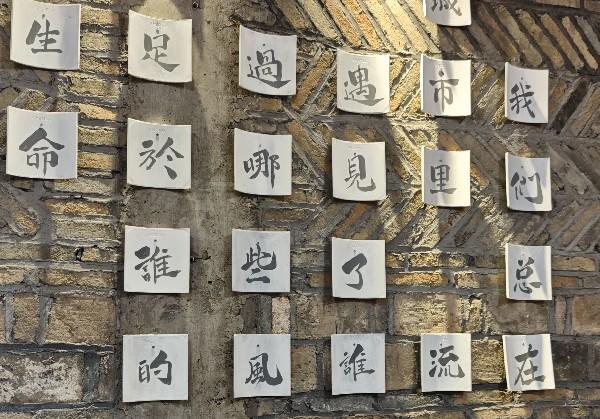 我们总在
城市里流
遇見了誰
過哪些風
足於誰的
生命